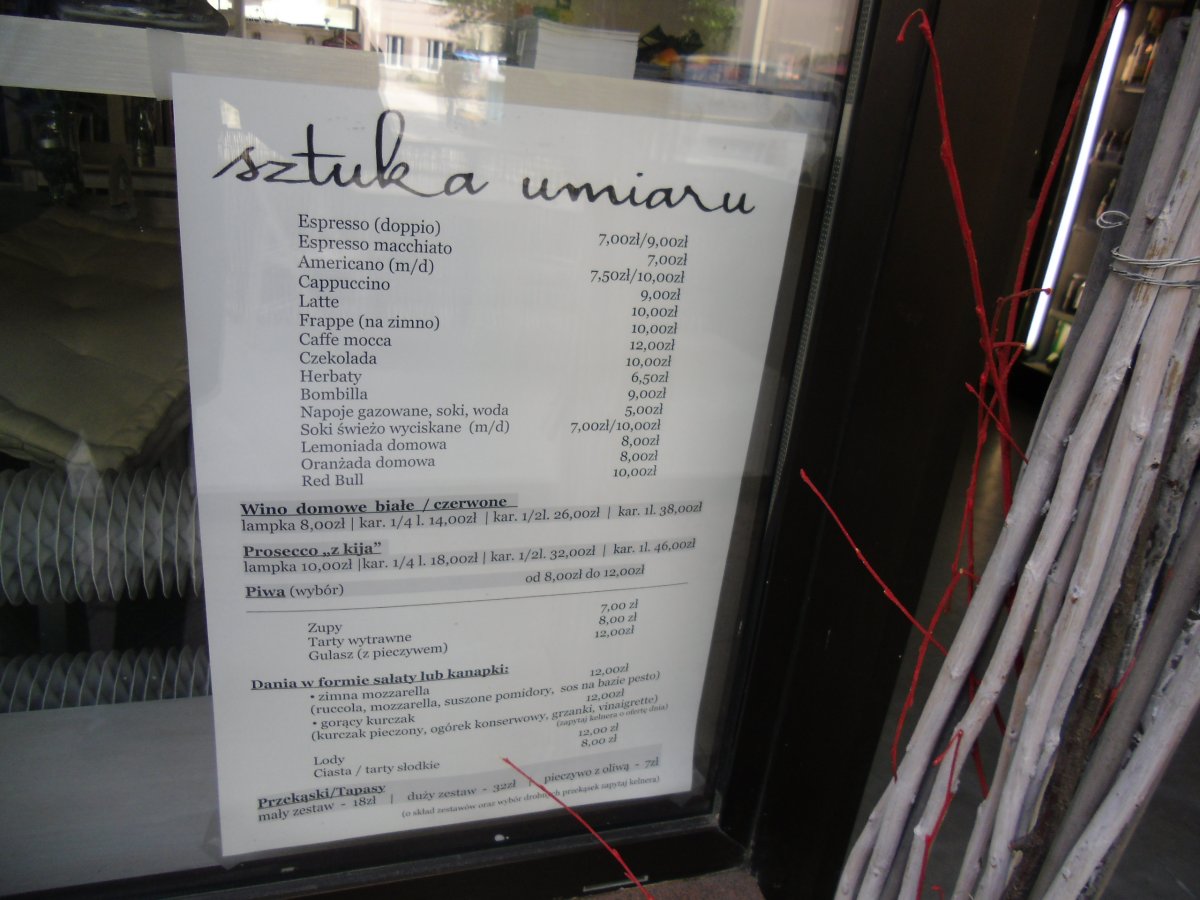 sztuka umiaru
Espresso (doppio) 7,00zł/9,00zł
Espresso macchiato 7,00zł
Americano (m/d) 7,50zł/10,00zł
Cappuccino 9,00zł
Latte 10,00zł
Frappe (na zimno) 10,00zł
Caffe mocca 12,00zł
Czekolada 10,00zł
Herbaty 6,50zł
Bombilla 9,00zł
Napoje gazowane, soki, woda 5,00zł
Soki świeżo wyciskane (m/d) 7,00zł/10,00zł
Lemoniada domowa 8,00zł
Oranżada domowa 8,00zł
Red Bull 10,00zł
Wino domowe białe / czerwone
lampka 8,00zł | kar. 1/4 l. 14,00zł | kar. 1/2l. 26,00zł | kar. 1l. 38,00zł
Prosecco „z kija”
lampka 10,00zł |kar. 1/4 l. 18,00zł | kar. 1/2l. 32,00zł | kar. 1l. 46,00zł
Piwa (wybór) od 8,00zł do 12,00zł
Zupy 7,00 zł
Tarty wytrawne 8,00 zł
Gulasz (z pieczywem) 12,00zł
Dania w formie sałaty lub kanapki:
• zimna mozzarella 12,00zł
(ruccola, mozzarella, suszone pomidory, sos na bazie pesto)
• gorący kurczak 12,00zł
(kurczak pieczony, ogórek konserwowy, grzanki, vinaigrette)
(zapytaj kelnera o ofertę dnia)
Lody 12,00 zł
Ciasta / tarty słodkie 8,00 zł
Przekąski/Tapasy
mały zestaw - 18zł | duży zestaw - 32zł | pieczywo z oliwą - 7zł
(o skład zestawów oraz wybór drobnych przekąsek zapytaj kelnera)